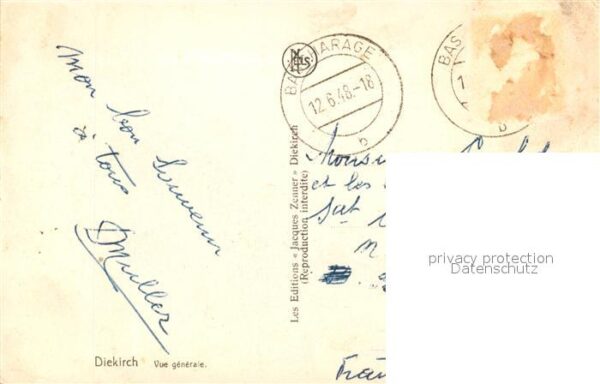 mon bon Souvenir
à tous
Muller
Diekirch Vue générale.
Les Editions « Jacques Zenner » Diekirch
(Reproduction interdite)
NELS
BASCHARAGE
12.6.48.-18
b
BAS
1
b
Monsieur
et les
privacy protection
Datenschutz